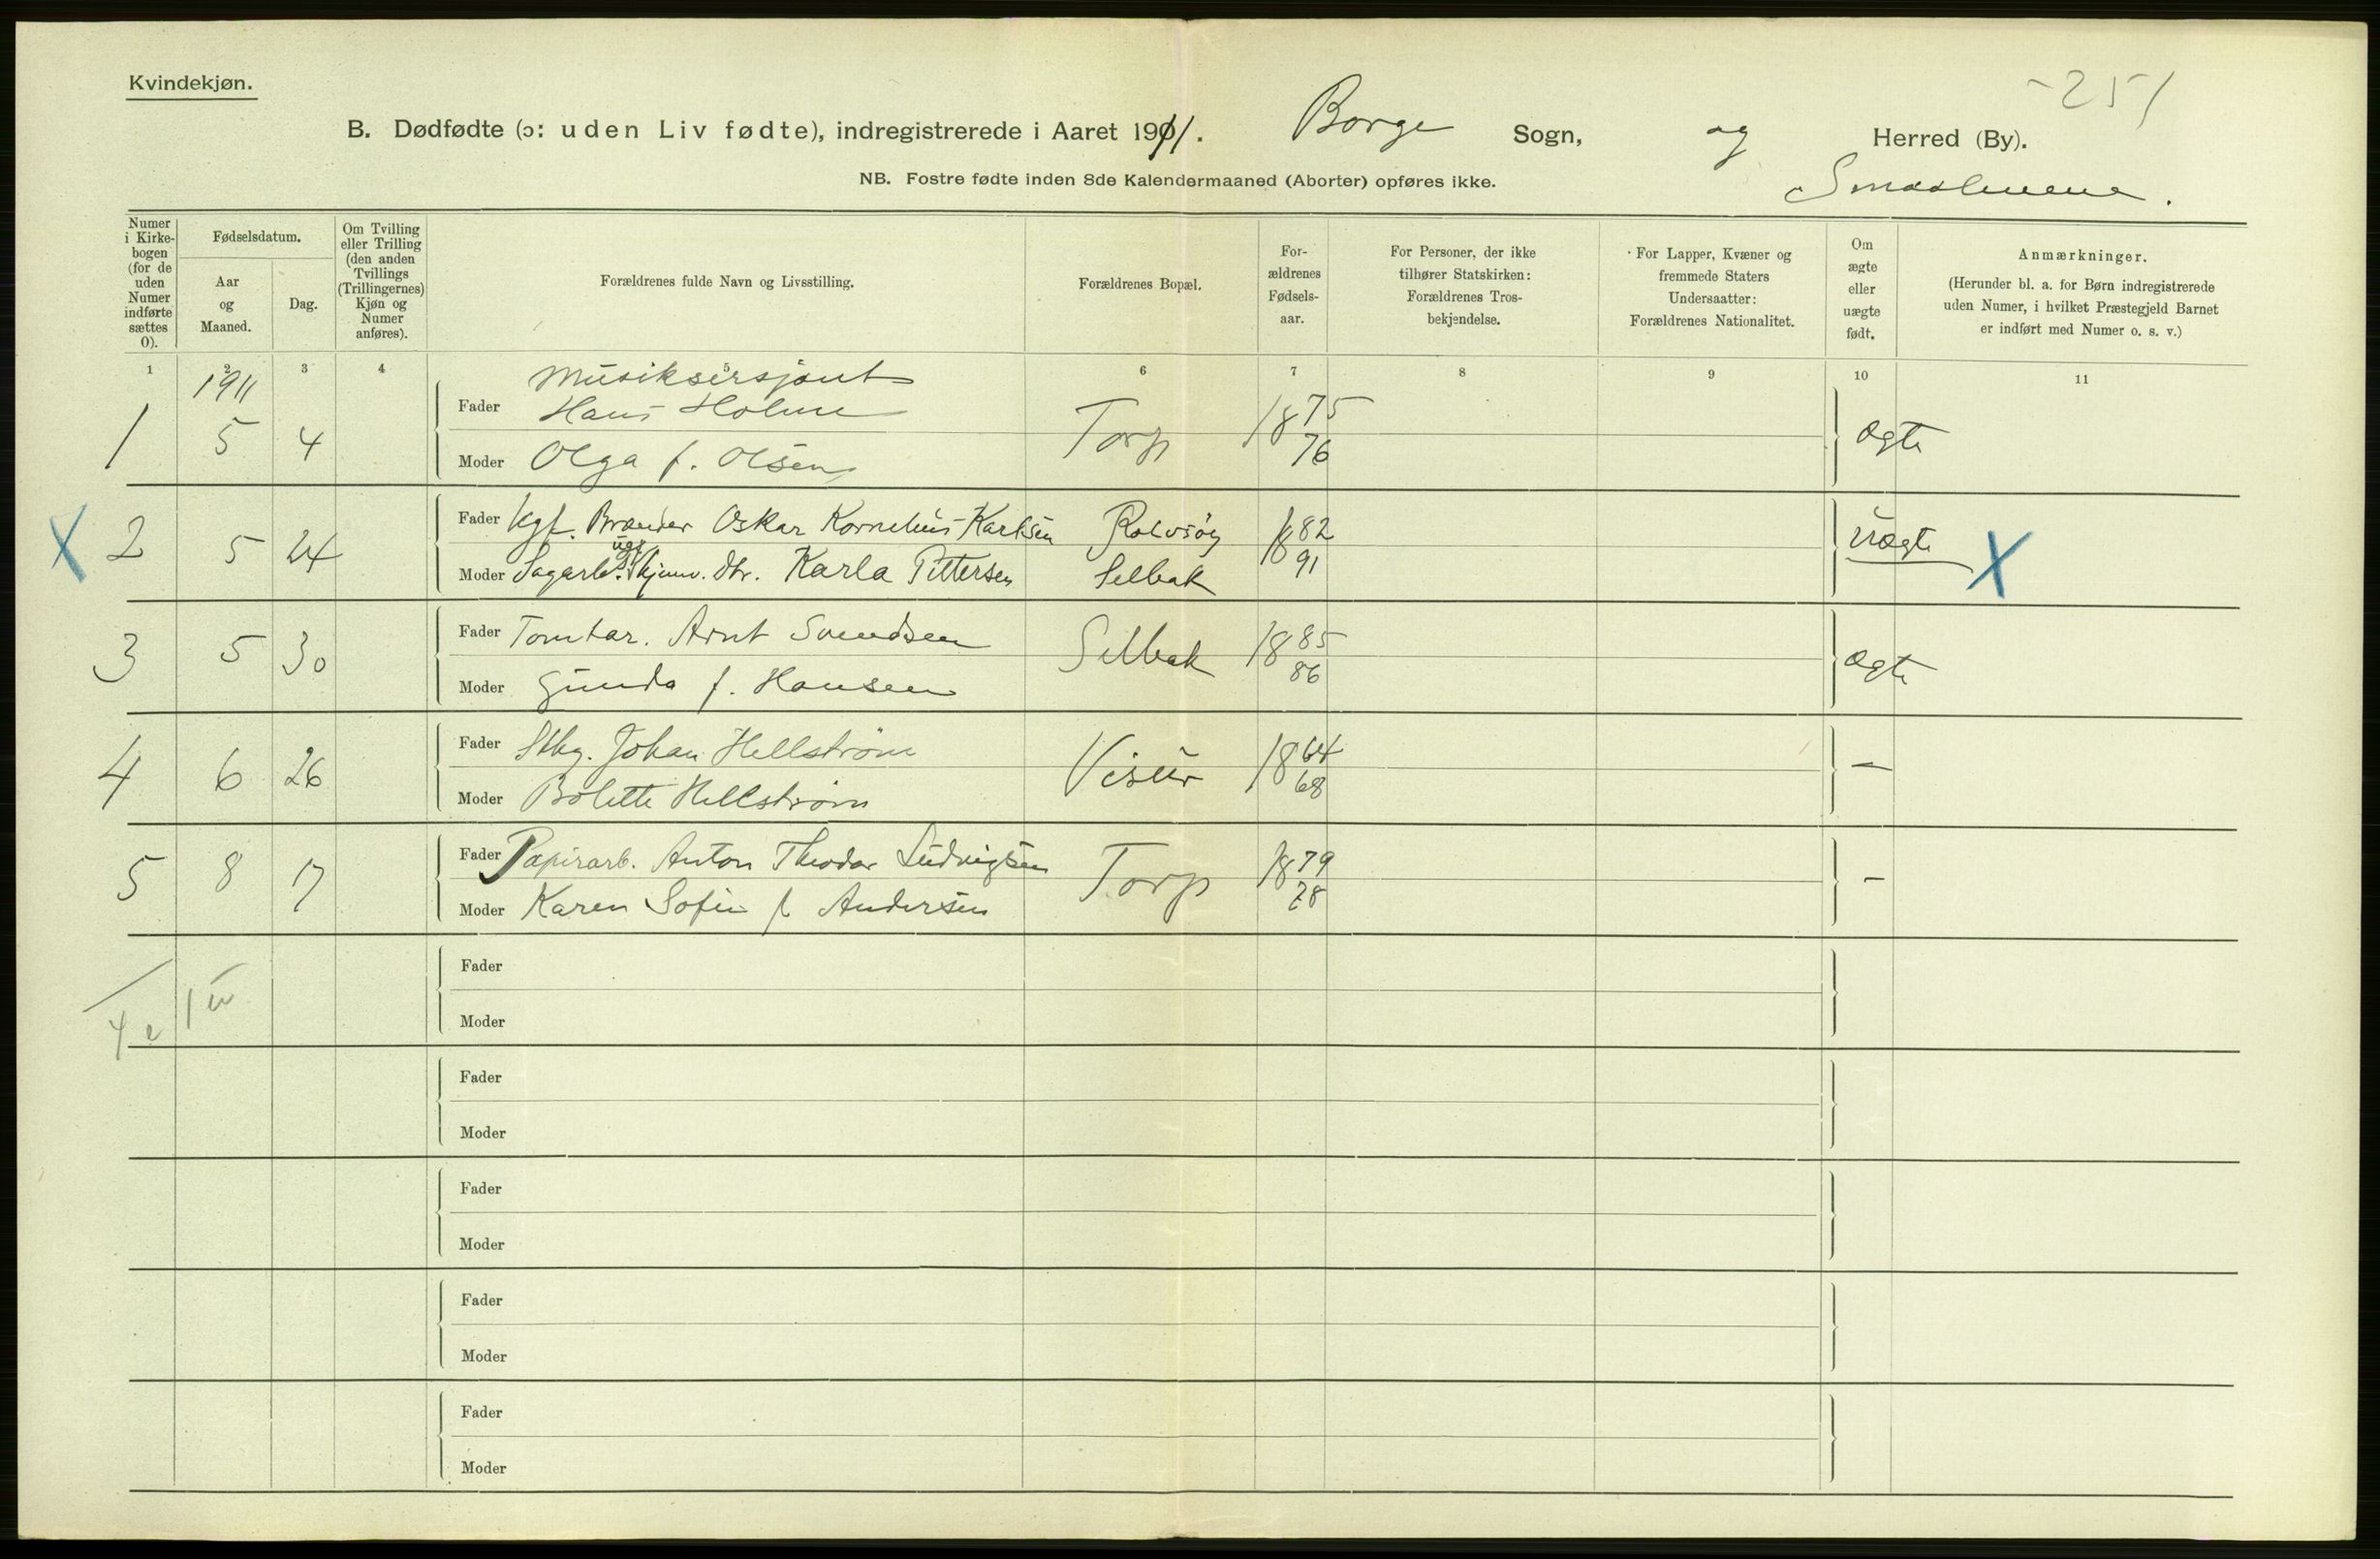 Kvindekjøn.
-251
B. Dødfødte (ɔ: uden Liv fødte), indregistrerede i Aaret 1911. Borge Sogn, og Herred (By).
Smaalenene.
NB. Fostre fødte inden 8de Kalendermaaned (Aborter) opføres ikke.
Numer i Kirke-bogen (for de uden Numer indførte sættes 0).
Fødselsdatum.
Aar og Maaned.
Dag.
Om Tvilling eller Trilling (den anden Tvillings (Trillingernes) Kjøn og Numer anføres).
Forældrenes fulde Navn og Livsstilling.
Forældrenes Bopæl.
For-ældrenes Fødsels-aar.
For Personer, der ikke tilhører Statskirken: Forældrenes Tros-bekjendelse.
For Lapper, Kvæner og fremmede Staters Undersaatter: Forældrenes Nationalitet.
Om ægte eller uægte født.
Anmærkninger.
(Herunder bl. a. for Børn indregistrerede uden Numer, i hvilket Præstegjeld Barnet er indført med Numer o. s. v.)
1 2 3 4 5 6 7 8 9 10 11
1911
Musiksersjant
1 5 4 Fader Hans Holme Torp 1875 ægte
Moder Olga f. Olsen 76
X 2 5 24 Fader Ugf. Brænder Oskar Kornelius Karlsen Rolvsøy 1882 uægte X
Moder Sagarb. ugf. Dtr. Karla Pettersen Selbak 91
3 5 30 Fader Tomtar. Arnt Svendsen Selbak 1885 ægte
Moder Gunda f. Hansen 86
4 6 26 Fader Johan Hellstrøm Visur 1864 —
Moder Bolette Hellstrøm 68
5 8 17 Fader Papirarb. Anton Theodor Ludvigsen Torp 1879 —
Moder Karen Sofie f Andersen 78
Fader
Moder
Fader
Moder
Fader
Moder
Fader
Moder
Fader
Moder